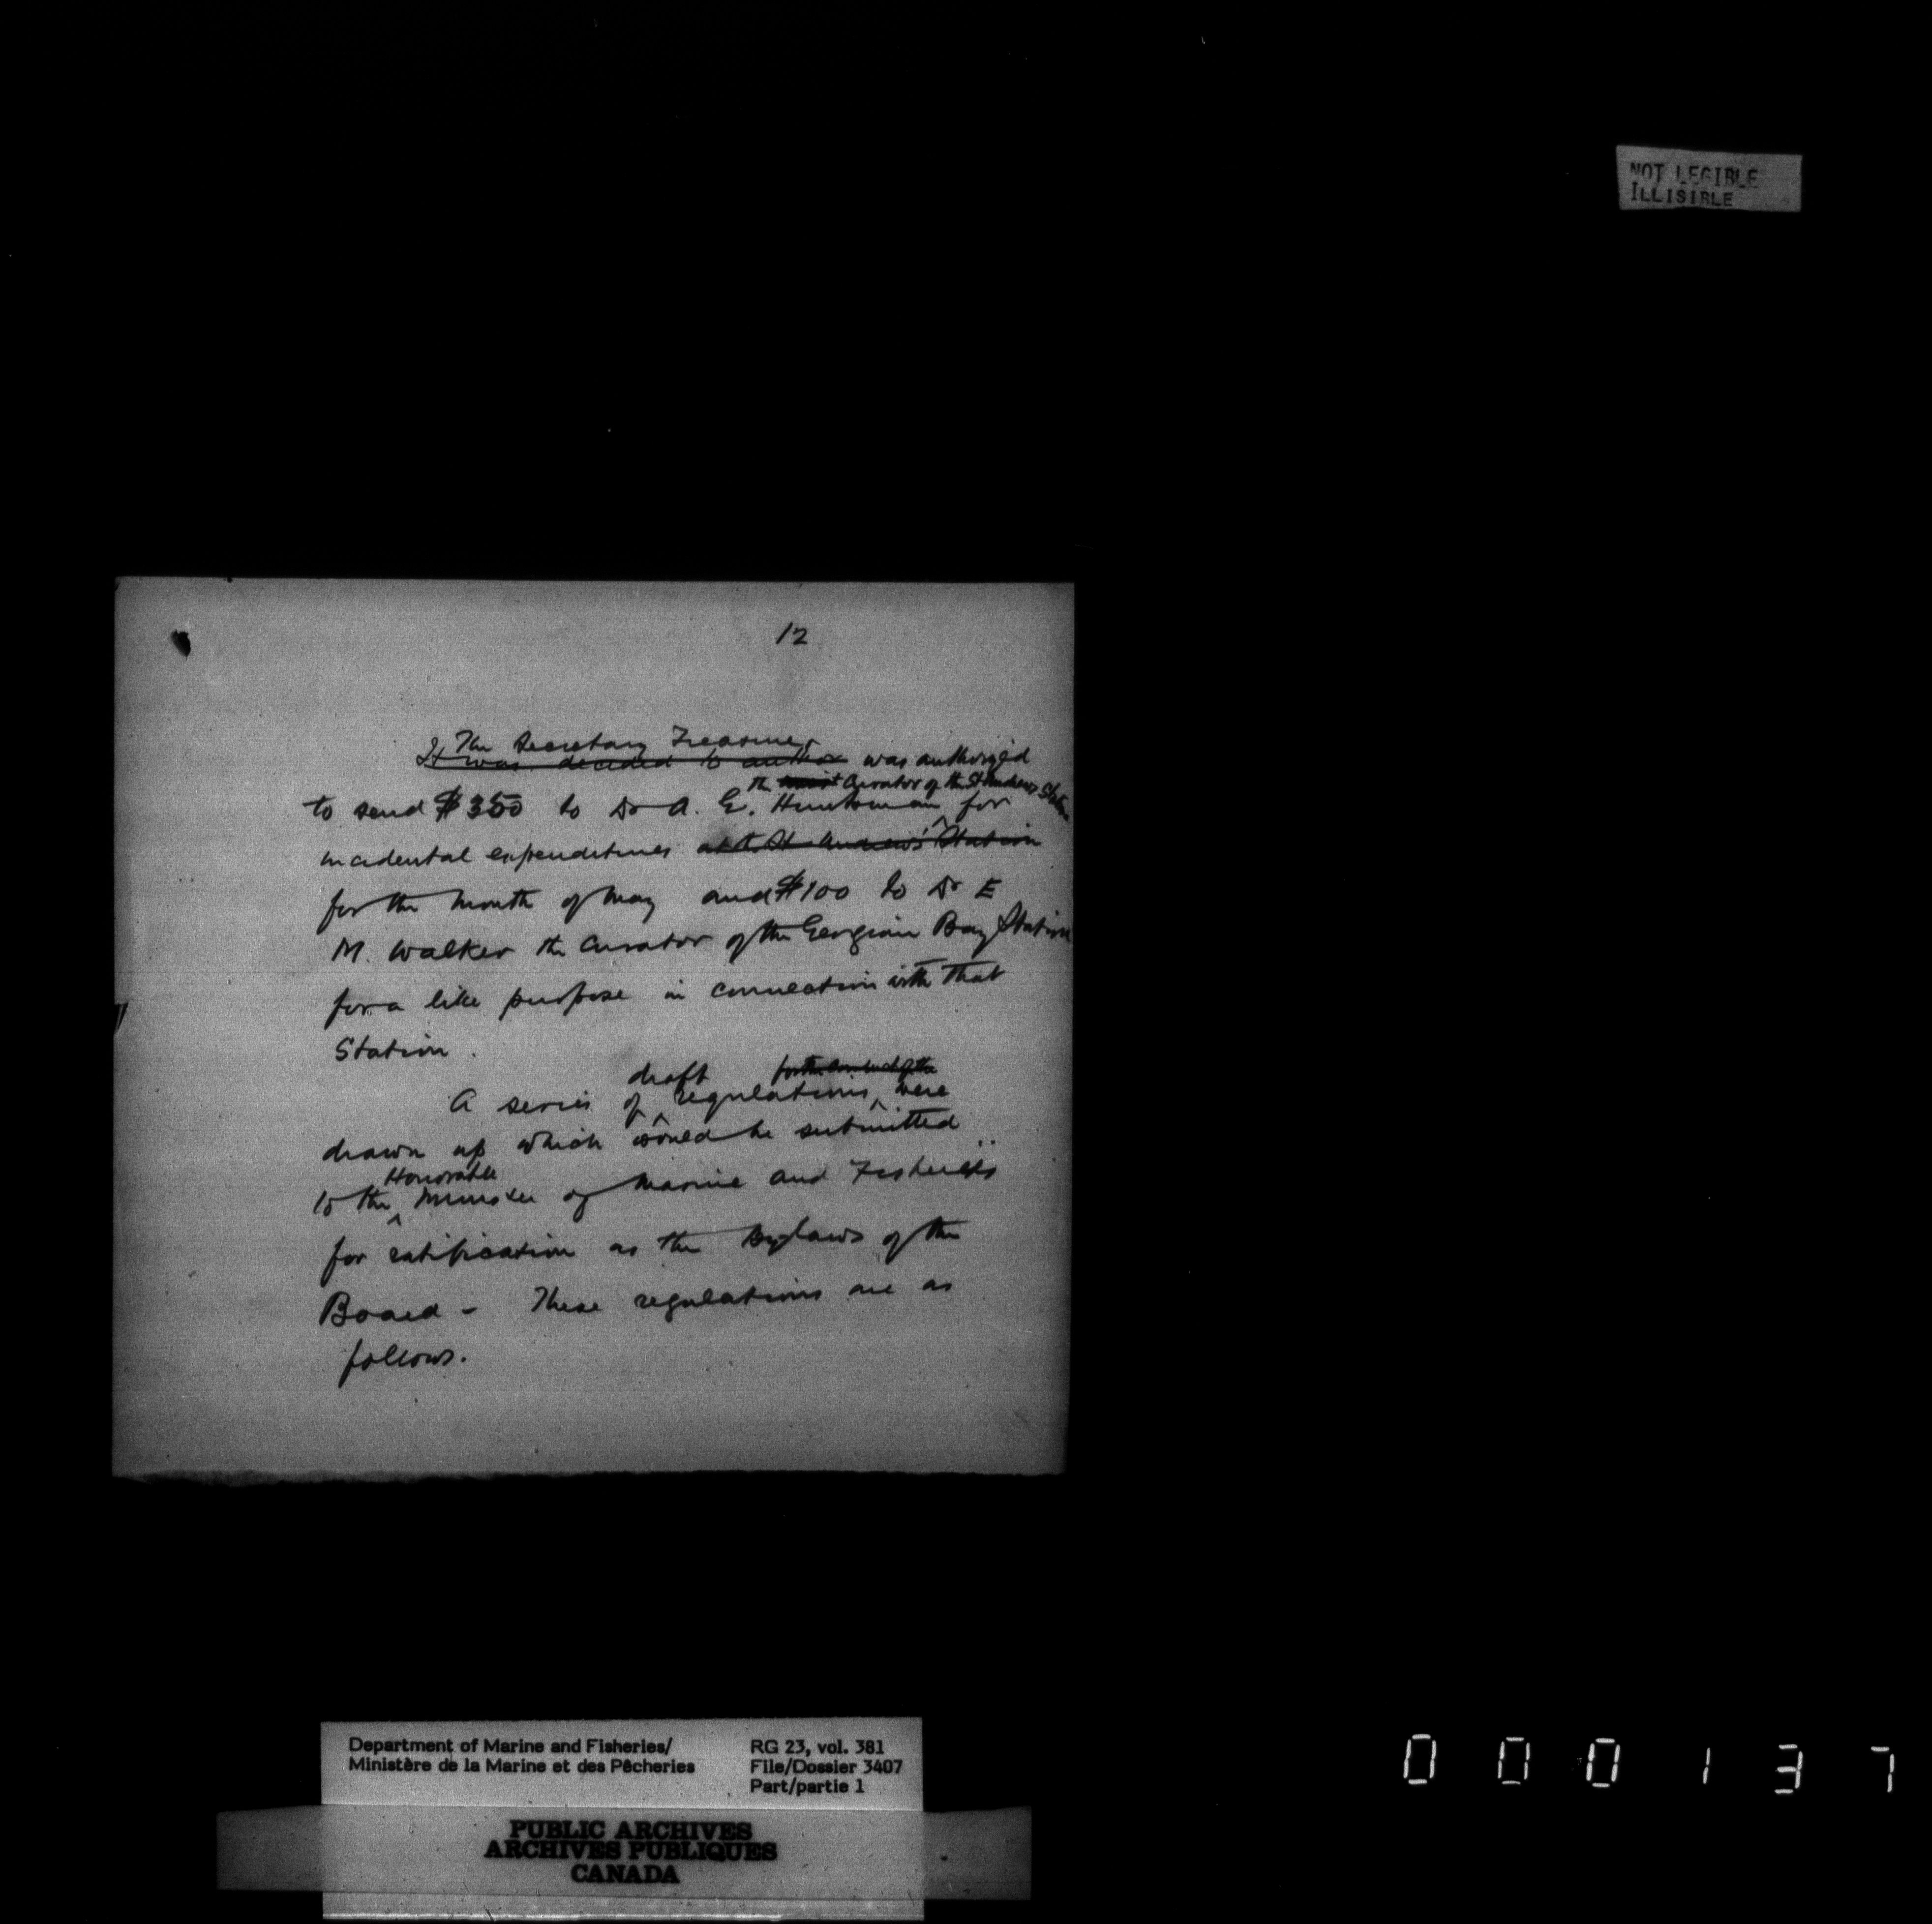 NOT LEGIBLE
ILLISIBLE
12
The Secretary Treasurer
It was decided to author was authorized
the Curator of the St Andrews Station
to send $350 to Dr A. G. Huntsman for
incidental expenditures at the St Andrews' Station
for the month of May and $100 to Dr E
M. Walker the Curator of the Georgian Bay Station
for a like purpose in connection with that
Station.
draft
A series of regulations were
drawn up which would be submitted
Honorable
to the Minister of Marine and Fisheries
for ratification as the Bylaws of the
Board - These regulations are as
follows.
Department of Marine and Fisheries/ RG 23, vol. 381
Ministère de la Marine et des Pêcheries File/Dossier 3407
Part/partie 1
PUBLIC ARCHIVES
ARCHIVES PUBLIQUES
CANADA
000137